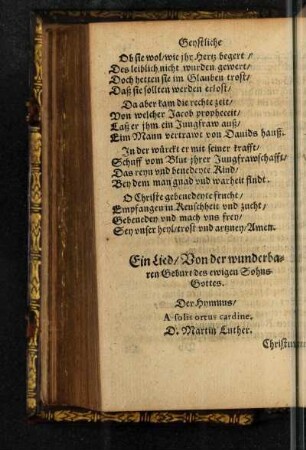 Geystliche
Ob sie wol/wie jhr Hertz begert/
Des leiblich nicht wurden gewert/
Doch hetten sie im Glauben trost/
Daß sie sollten werden erlost/
Da aber kam die rechte zeit/
Von welcher Jacob propheceit/
Laß er jhm ein Jungfraw auß/
Eim Mann vertrawt von Dauids hauß.
In der würckt er mit seiner krafft/
Schuff vom Blut jhrer Jungfrawschafft/
Das reyn vnd benedeyte Kind/
Bey dem man gnad vnd warheit findt.
O Christe gebenedeyte frucht/
Empfangen in Keuschheit vnd zucht/
Gebenedey vnd mach vns frey/
Sey vnser heyl/trost vnd artzney/Amen.
Ein Lied/Von der wunderba-
ren Geburt des ewigen Sohns
Gottes.
Der Hymnus/
A solis ortus cardine.
D. Martin Luther.
Christum